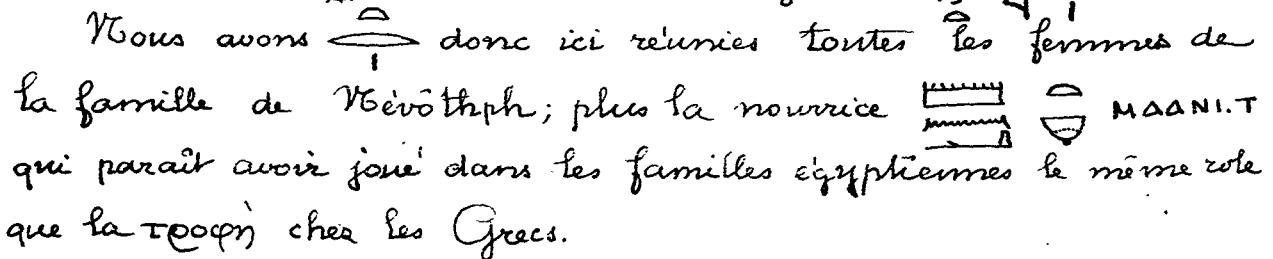 Nous avons donc ici réunies toutes les femmes de
la famille de Névôthph; plus la nourrice MAANI.T
qui paraît avoir joué dans les familles égyptiennes le même role
que la τροφὴ chez les Grecs.